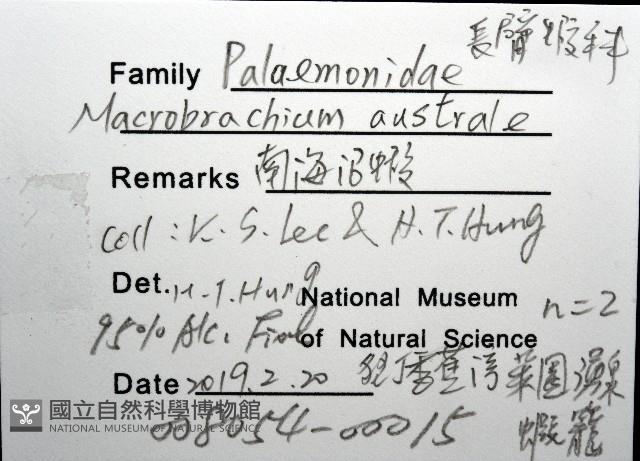 長臂蝦科
Family Palaemonidae
Macrobrachium australe
Remarks 南海沼蝦
Coll: K. S. Lee & H. T. Hung
Det. H. T. Hung
National Museum n=2
95% Alc. Fixed of Natural Science
Date 2019.2.20 菜園
蝦籠
008054-00015
國立自然科學博物館
NATIONAL MUSEUM OF NATURAL SCIENCE